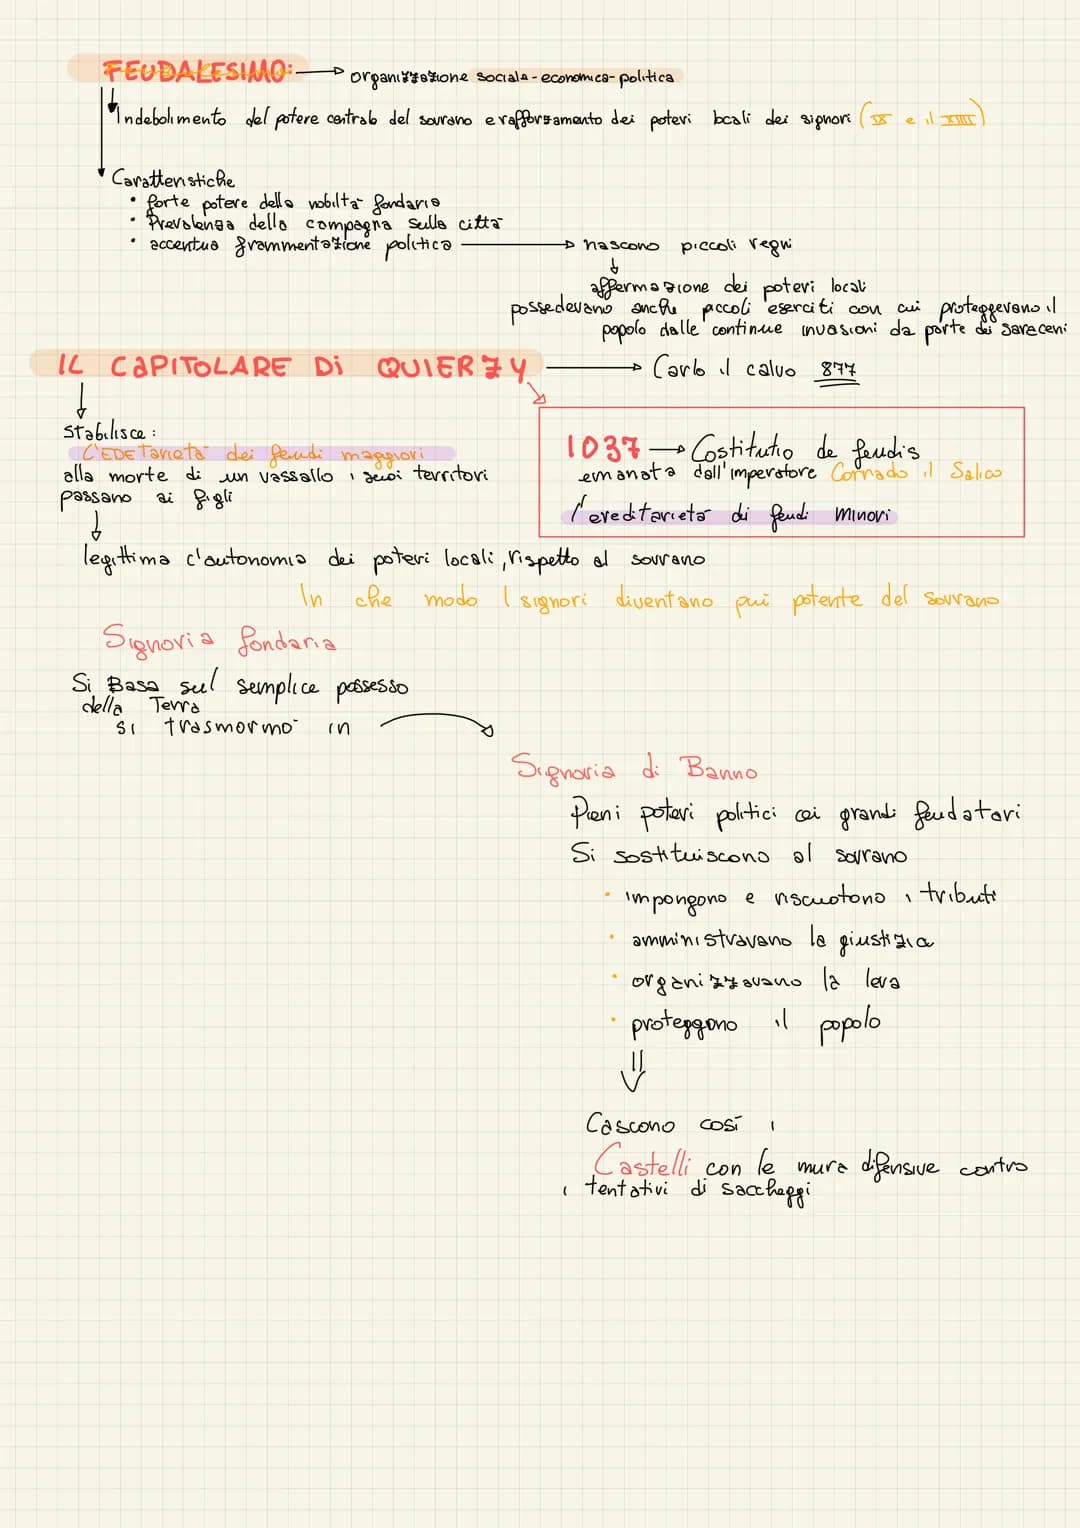 FEUDALESIMO: → organizzazione sociale-economica-politica
Indebolimento del potere centrale del sovrano e rafforzamento dei poteri locali dei signori (IX e il XIII)
Caratteristiche
• forte potere della nobiltà fondaria
• Prevalenza della compagna sulla città
• accentua frammentazione politica → nascono piccoli regni
affermazione dei poteri locali
possedevano anche piccoli eserciti con cui proteggevano il
popolo dalle continue invasioni da parte dei Saraceni
IL CAPITOLARE Di QUIERZY → Carlo il calvo 877
Stabilisce:
L'EDETarietà dei feudi maggiori
alla morte di un vassallo i suoi territori
passano ai figli
1037 → Costitutio de feudis
emanata dall'imperatore Corrado il Salico
l'ereditarietà di feudi minori
legittima l'autonomia dei poteri locali, rispetto al sovrano
In che modo I signori diventano pui potente del sovrano
Signoria fondaria
Si Basa sul semplice possesso
della Terra
si trasmormò in
Signoria di Banno
Pieni poteri politici ai grandi feudatari
Si sostituiscono al sovrano
• impongono e riscuotono i tributi
• amministravano la giustizia
• organizzavano la leva
• proteggono il popolo
Cascono così i
Castelli con le mura difensive contro
i tentativi di saccheggi